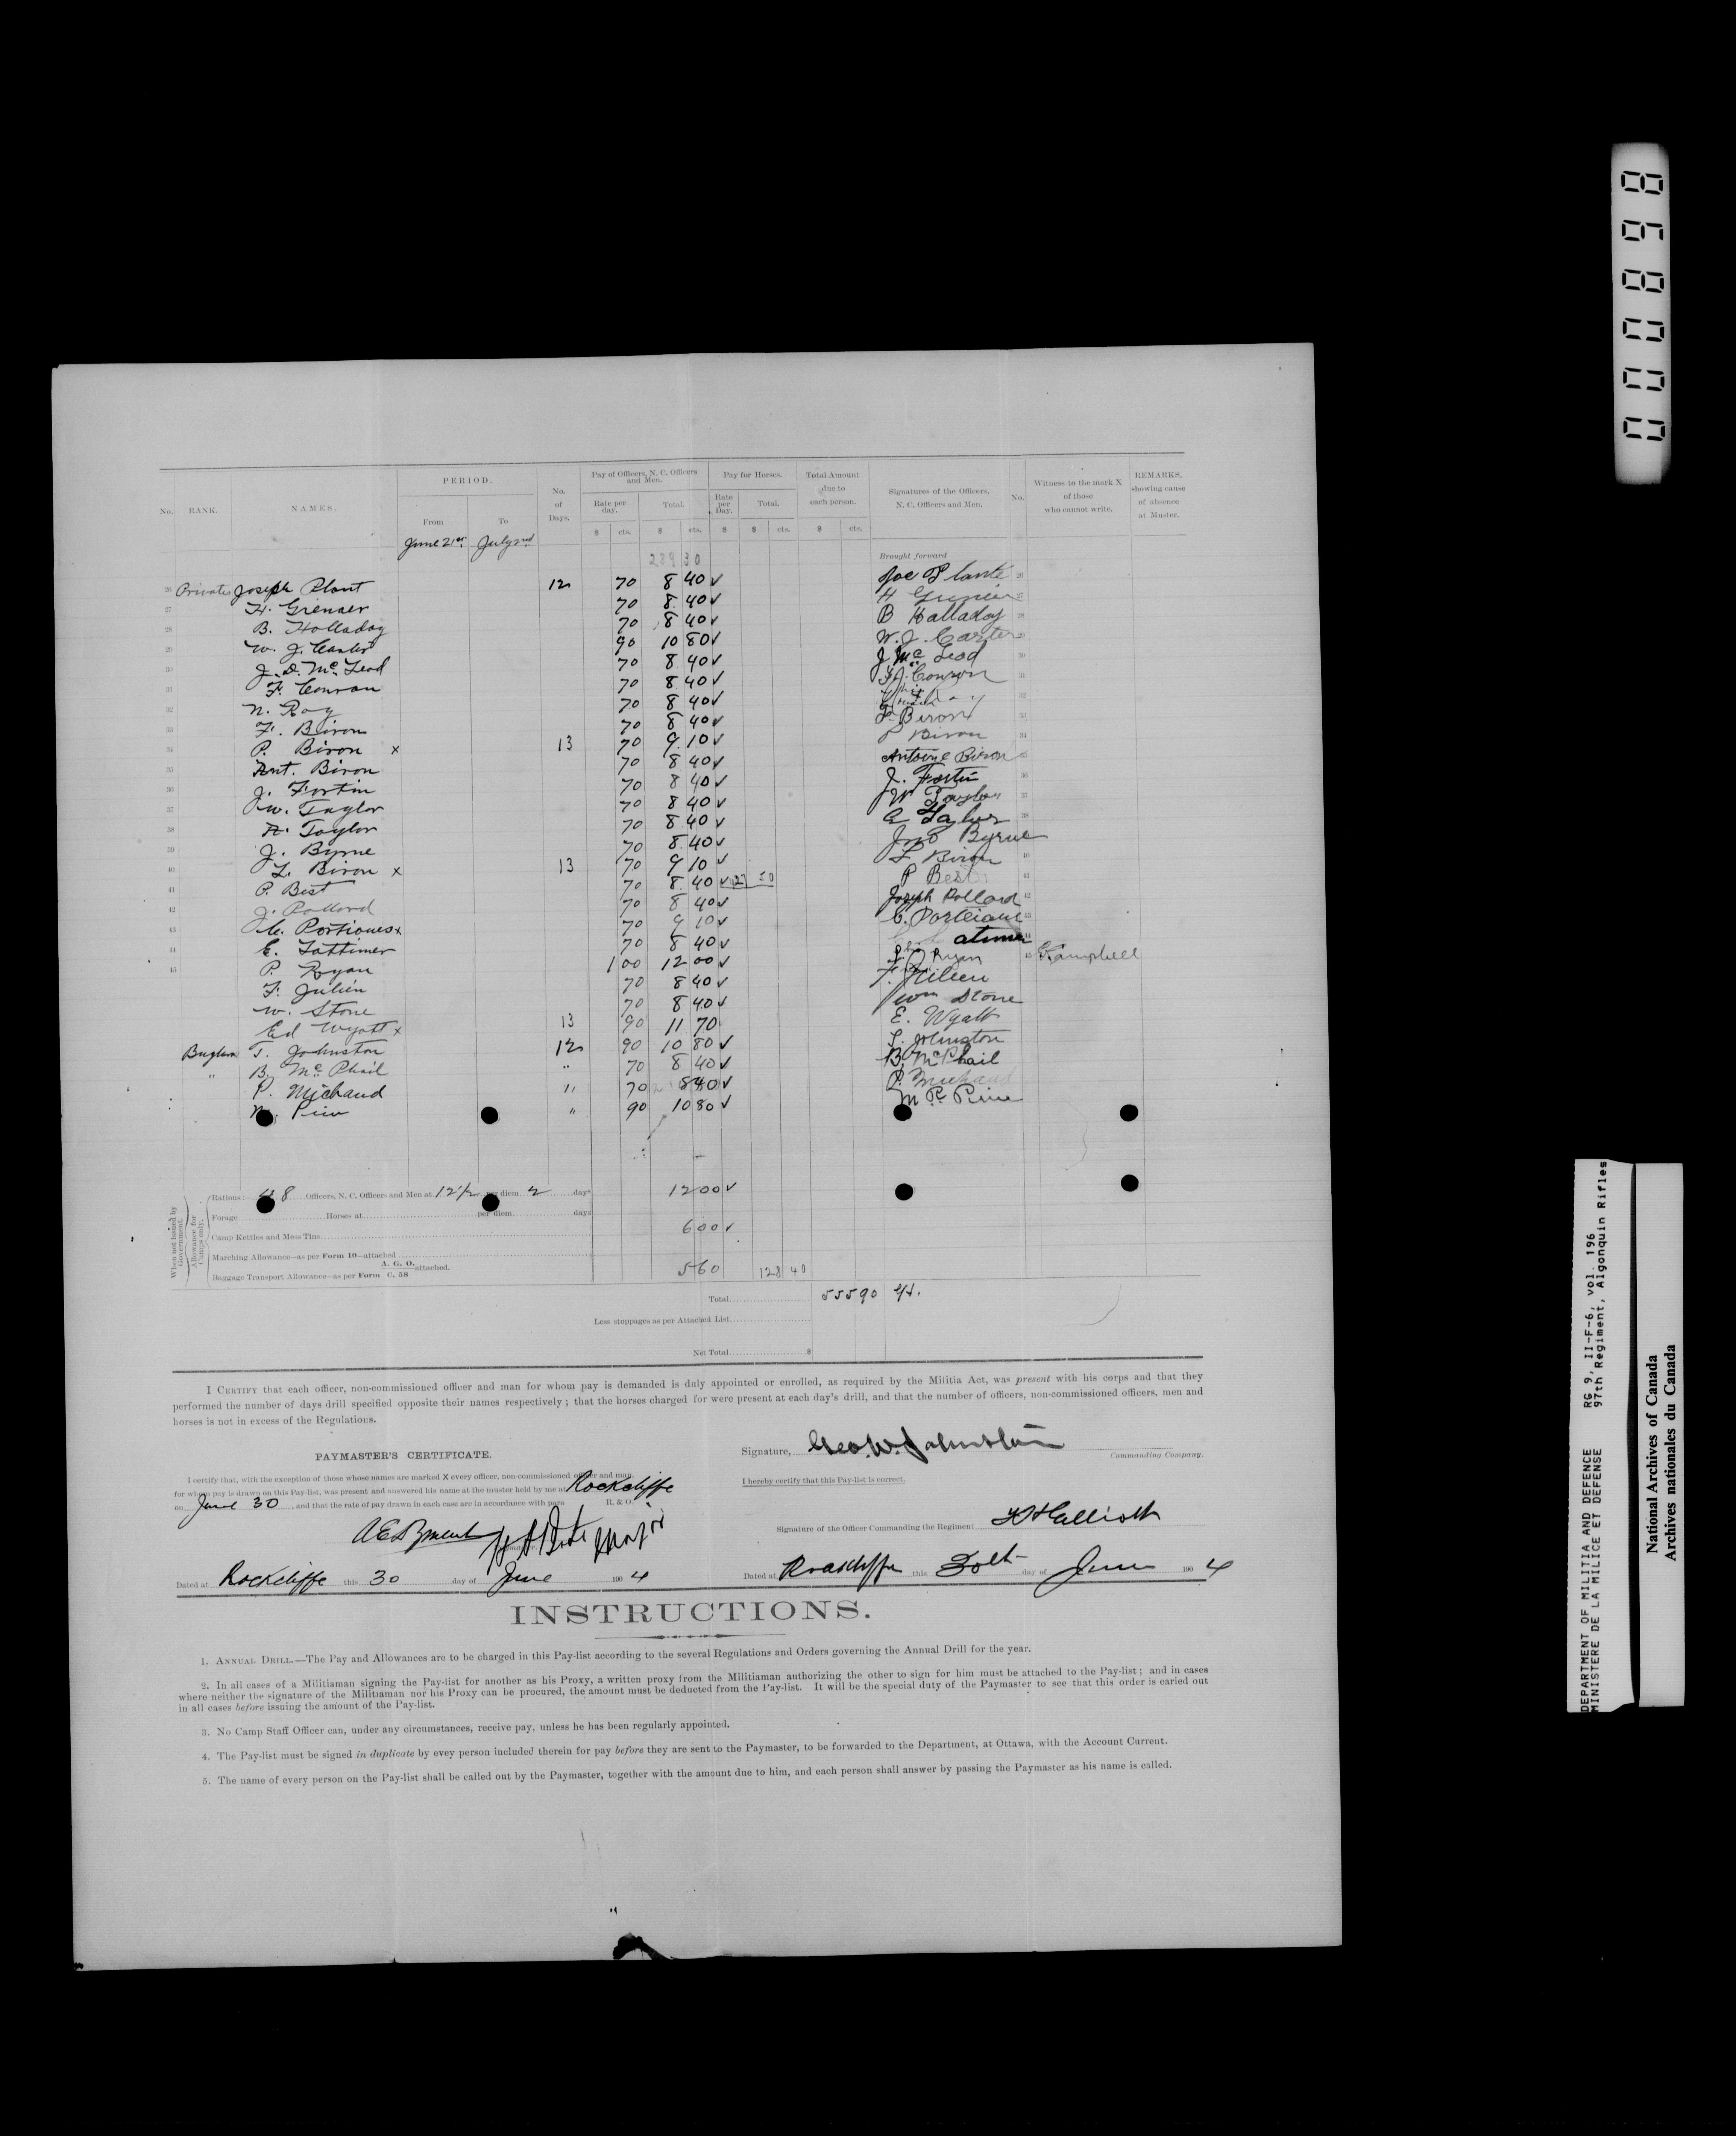 No. RANK. NAMES. PERIOD. From To No. of Days. Pay of Officers, N. C. Officers and Men. Rate per day. Total. Pay for Horses. Rate per Day. Total. Total Amount due to each person. Signatures of the Officers, N. C. Officers and Men. No. Witness to the mark X of those who cannot write. REMARKS, showing cause of absence at Muster.
$ cts. $ cts. $ $ cts. $ cts.
June 21st July 2nd
289 30 Brought forward
26 Private Joseph Plant 12 70 8 40 ✓ Joe Plante 26
27 H. Grenier 70 8 40 ✓ H Grenier 27
28 B. Holladay 70 8 40 ✓ B Halladay 28
29 W. J. Carter 90 10 80 ✓ W. J. Carter 29
30 J. D. Mc Leod 70 8 40 ✓ J Mc Leod 30
31 F. Conran 70 8 40 ✓ 31
32 N. Roy 70 8 40 ✓ 32
33 F. Biron 70 8 40 ✓ F. Biron 33
34 P. Biron x 13 70 9.10 ✓ P Biron 34
35 Ant. Biron 70 8 40 ✓ Antoine Biron 35
36 J. Fortin 70 8 40 ✓ J. Fortin 36
37 W. Taylor 70 8 40 ✓ W Taylor 37
38 A. Taylor 70 8 40 ✓ A Taylor 38
39 J. Byrne 70 8.40 ✓ Jno Byrne
40 L. Biron x 13 70 9 10 ✓ L Biron 40
41 P. Best 70 8. 40 ✓ P Best 41
42 J. Pollard 70 8 40 ✓ Joseph Pollard 42
43 C. Portious x 70 9 10 ✓ 43
44 E. Lattimer 70 8 40 ✓ 44
45 P. Ryan 1 00 12 00 ✓ P Ryan 45 Campbell
F. Julien 70 8 40 ✓
W. Stone 70 8 40 ✓ Wm Stone
Ed Wyatt x 13 90 11 70 E. Wyatt
Buglers T. Johnston 12 90 10 80 ✓ T. Johnston
" B. Mc Phail " 70 8 40 ✓ B. Mc Phail
P. Michaud " 70 8 40 ✓ P. Michaud
" 90 10 80 ✓
When not issued by Government. Allowance for Camps only.
Rations:— 48 Officers, N. C. Officers and Men at 12 1/2 per diem 2 days 12 00 ✓
Forage Horses at per diem days
Camp Kettles and Mess Tins 6 00 ✓
Marching Allowance—as per Form 10—attached
Baggage Transport Allowance—as per Form A. G. O. C. 58 attached. 5 60 128 40
Total 555 90
Less stoppages as per Attached List
Net Total $
I CERTIFY that each officer, non-commissioned officer and man for whom pay is demanded is duly appointed or enrolled, as required by the Militia Act, was present with his corps and that they
performed the number of days drill specified opposite their names respectively; that the horses charged for were present at each day's drill, and that the number of officers, non-commissioned officers, men and
horses is not in excess of the Regulations.
Signature, Geo. W. Johnston
Commanding Company.
PAYMASTER'S CERTIFICATE.
I certify that, with the exception of those whose names are marked X every officer, non-commissioned officer and man
for whom pay is drawn on this Pay-list, was present and answered his name at the muster held by me at Rockcliffe
on June 30, and that the rate of pay drawn in each case are in accordance with para R. & O.
I hereby certify that this Pay-list is correct.
Signature of the Officer Commanding the Regiment
Dated at Rockcliffe this 30 day of June 190 4
Dated at Rockcliffe this 30th day of June 190 4
INSTRUCTIONS.
1. ANNUAL DRILL.—The Pay and Allowances are to be charged in this Pay-list according to the several Regulations and Orders governing the Annual Drill for the year.
2. In all cases of a Militiaman signing the Pay-list for another as his Proxy, a written proxy from the Militiaman authorizing the other to sign for him must be attached to the Pay-list; and in cases
where neither the signature of the Militiaman nor his Proxy can be procured, the amount must be deducted from the Pay-list. It will be the special duty of the Paymaster to see that this order is caried out
in all cases before issuing the amount of the Pay-list.
3. No Camp Staff Officer can, under any circumstances, receive pay, unless he has been regularly appointed.
4. The Pay-list must be signed in duplicate by evey person included therein for pay before they are sent to the Paymaster, to be forwarded to the Department, at Ottawa, with the Account Current.
5. The name of every person on the Pay-list shall be called out by the Paymaster, together with the amount due to him, and each person shall answer by passing the Paymaster as his name is called.
000898
DEPARTMENT OF MILITIA AND DEFENCE RG 9, II-F-6, vol. 196
MINISTERE DE LA MILICE ET DEFENSE 97th Regiment, Algonquin Rifles
National Archives of Canada
Archives nationales du Canada